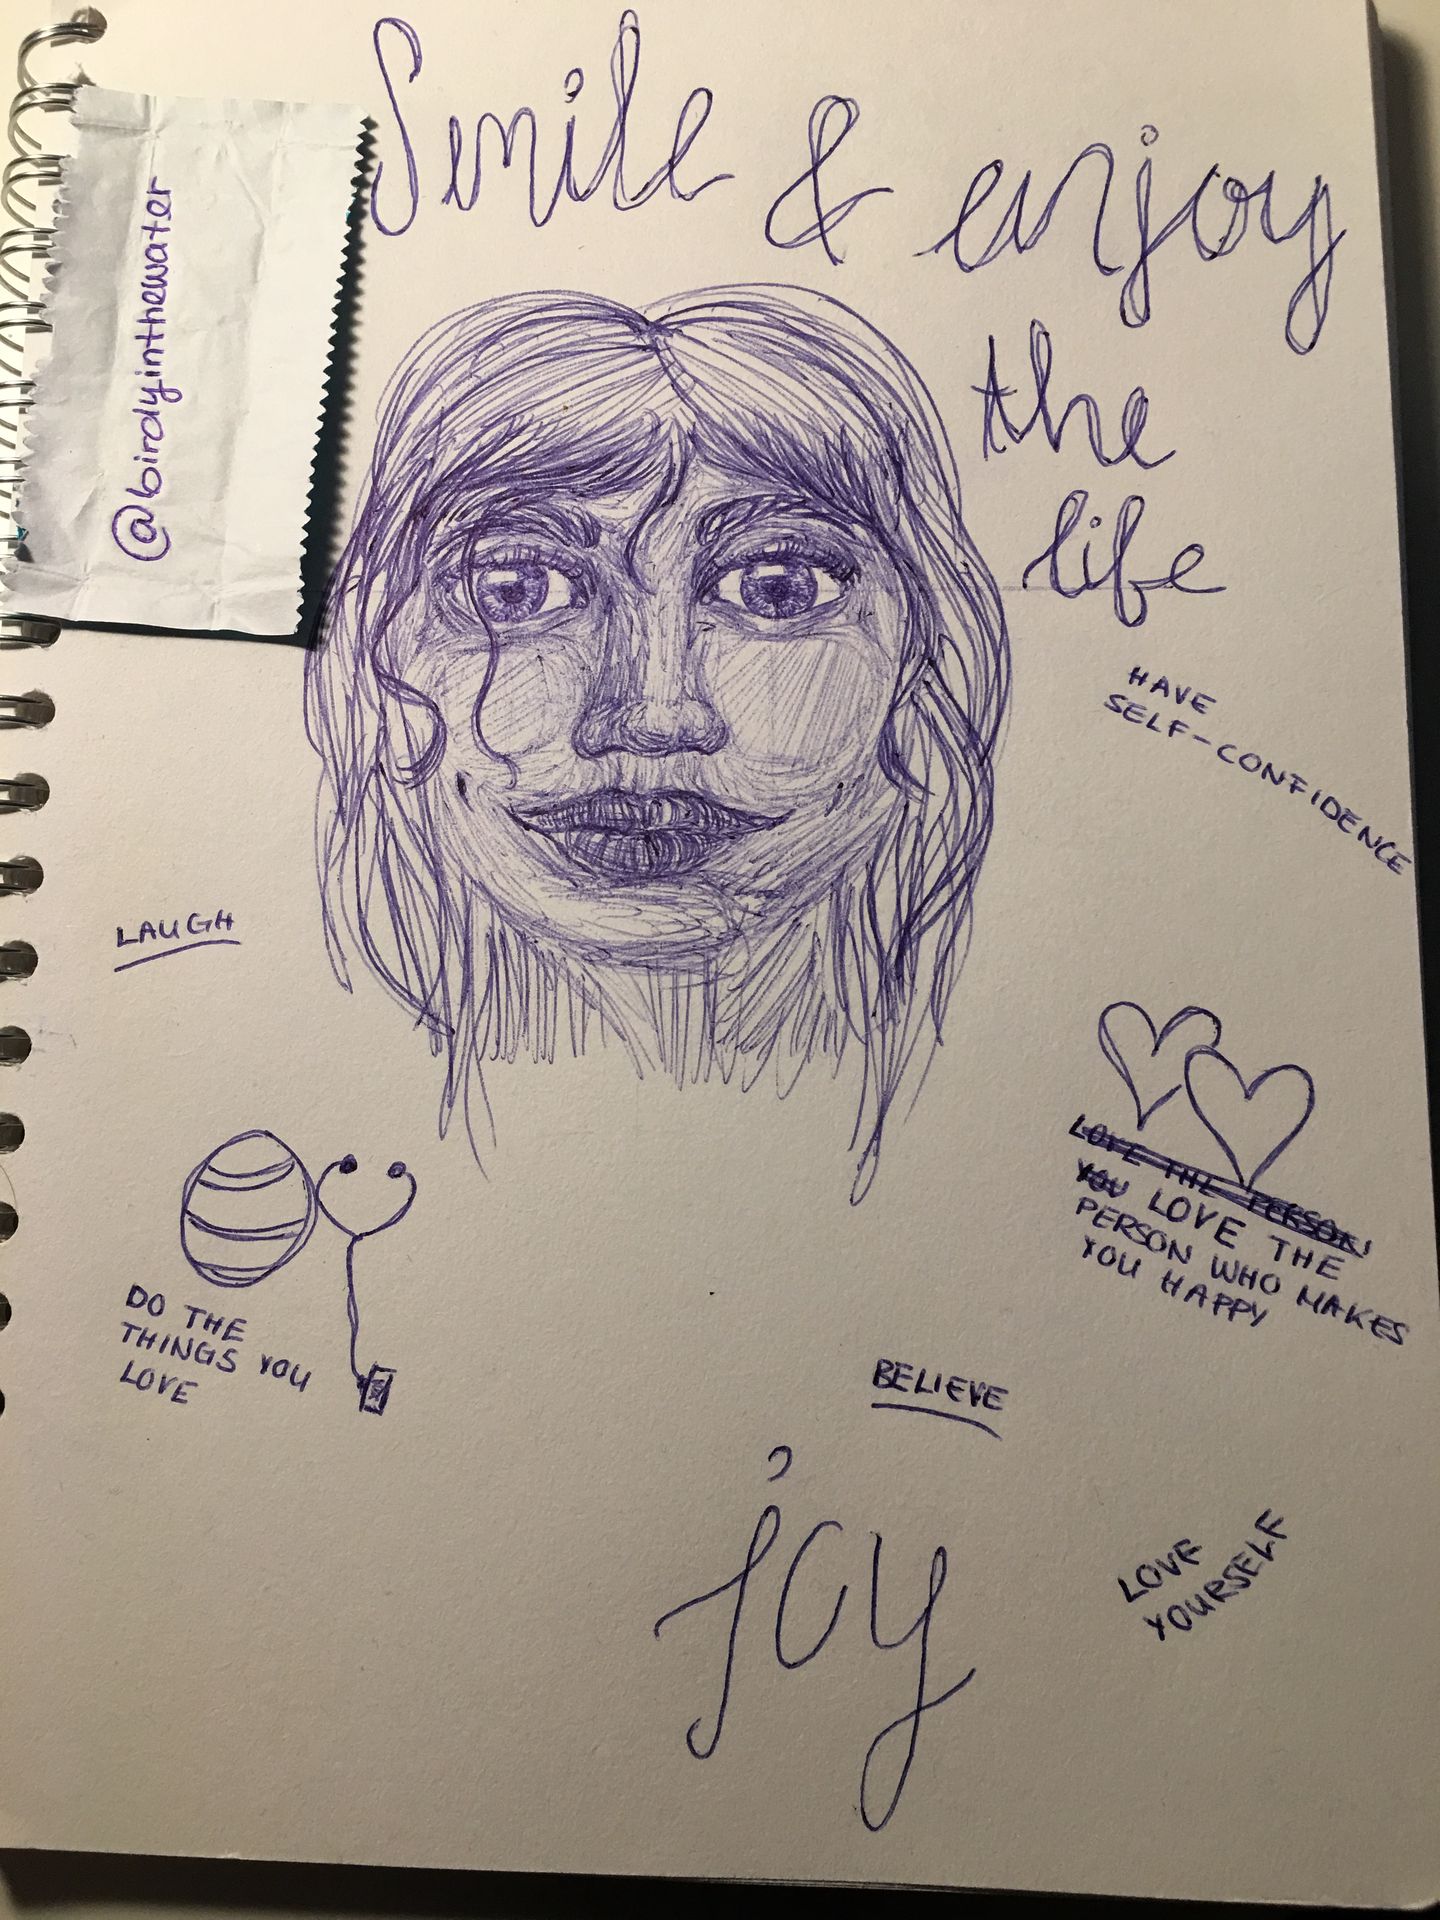 Smile & enjoy
the
life
@birdyinthewater
HAVE
SELF-CONFIDENCE
LAUGH
LOVE THE PERSON
YOU LOVE THE
PERSON WHO MAKES
YOU HAPPY
DO THE
THINGS YOU
LOVE
BELIEVE
joy
LOVE
YOURSELF